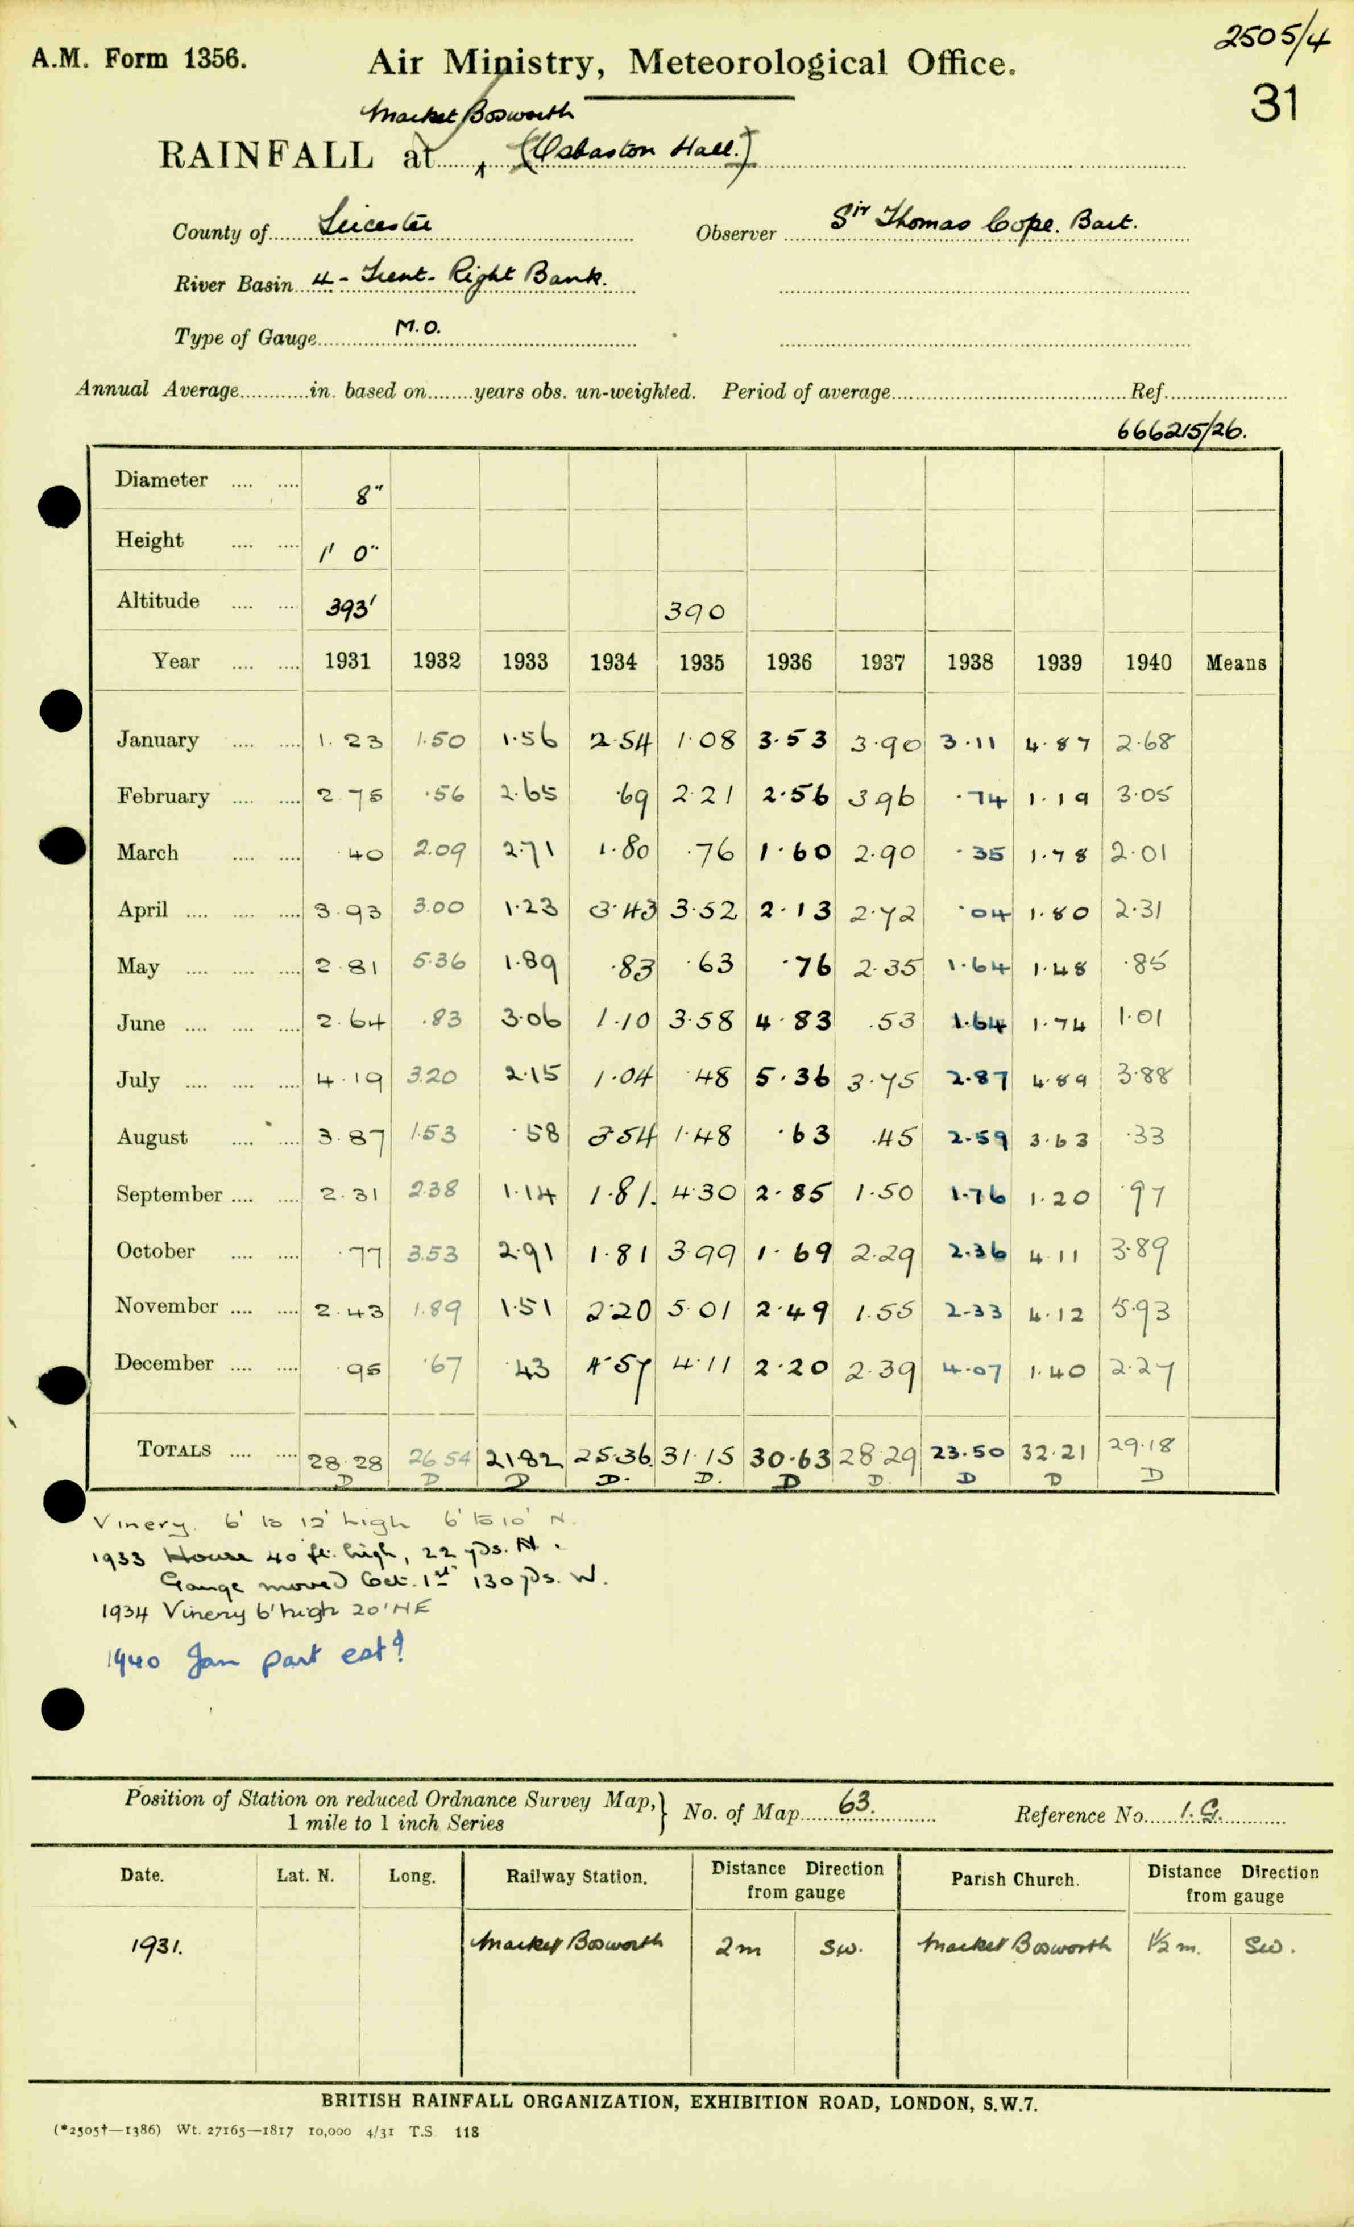 2505/4
A.M. Form 1356. Air Ministry, Meteorological Office.
31
Market Bosworth
RAINFALL at (Osbaston Hall.)
County of Leicester Observer Sir Thomas Cope. Bart.
River Basin 4 - Trent - Right Bank.
Type of Gauge M.O.
Annual Average in. based on years obs. un-weighted. Period of average Ref.
666215/26.
Diameter 8"
Height 1' 0"
Altitude 393' 390
Year 1931 1932 1933 1934 1935 1936 1937 1938 1939 1940 Means
January 1.23 1.50 1.56 2.54 1.08 3.53 3.90 3.11 4.87 2.68
February 2.75 .56 2.65 .69 2.21 2.56 3.96 .74 1.19 3.05
March .40 2.09 2.71 1.80 .76 1.60 2.90 .35 1.78 2.01
April 3.93 3.00 1.23 3.43 3.52 2.13 2.72 .04 1.80 2.31
May 2.81 5.36 1.89 .83 .63 .76 2.35 1.64 1.48 .85
June 2.64 .83 3.06 1.10 3.58 4.83 .53 1.64 1.74 1.01
July 4.19 3.20 2.15 1.04 .48 5.36 3.75 2.87 4.89 3.88
August 3.87 1.53 .58 3.54 1.48 .63 .45 2.59 3.63 .33
September 2.31 2.38 1.14 1.81. 4.30 2.85 1.50 1.76 1.20 .97
October .77 3.53 2.91 1.81 3.99 1.69 2.29 2.36 4.11 3.89
November 2.43 1.89 1.51 2.20 5.01 2.49 1.55 2.33 4.12 5.93
December .95 .67 .43 4.57 4.11 2.20 2.39 4.07 1.40 2.27
TOTALS 28.28 26.54 21.82 25.36 31.15 30.63 28.29 23.50 32.21 29.18
D D D D. D. D D. D D D
Vinery. 6' to 12' high 6' to 10' N.
1933 House 40 ft. high, 22 yds. N.
Gauge moved Oct. 1st 130 yds. W.
1934 Vinery 6' high 20' NE
1940 Jan part estd
Position of Station on reduced Ordnance Survey Map,} No. of Map 63. Reference No. 1.G.
1 mile to 1 inch Series
Date. Lat. N. Long. Railway Station. Distance Direction from gauge Parish Church. Distance Direction from gauge
1931. Market Bosworth 2m SW. Market Bosworth 1/2 m. SW.
BRITISH RAINFALL ORGANIZATION, EXHIBITION ROAD, LONDON, S.W.7.
(*2505†—1386) Wt. 27165—1817 10,000 4/31 T.S. 118